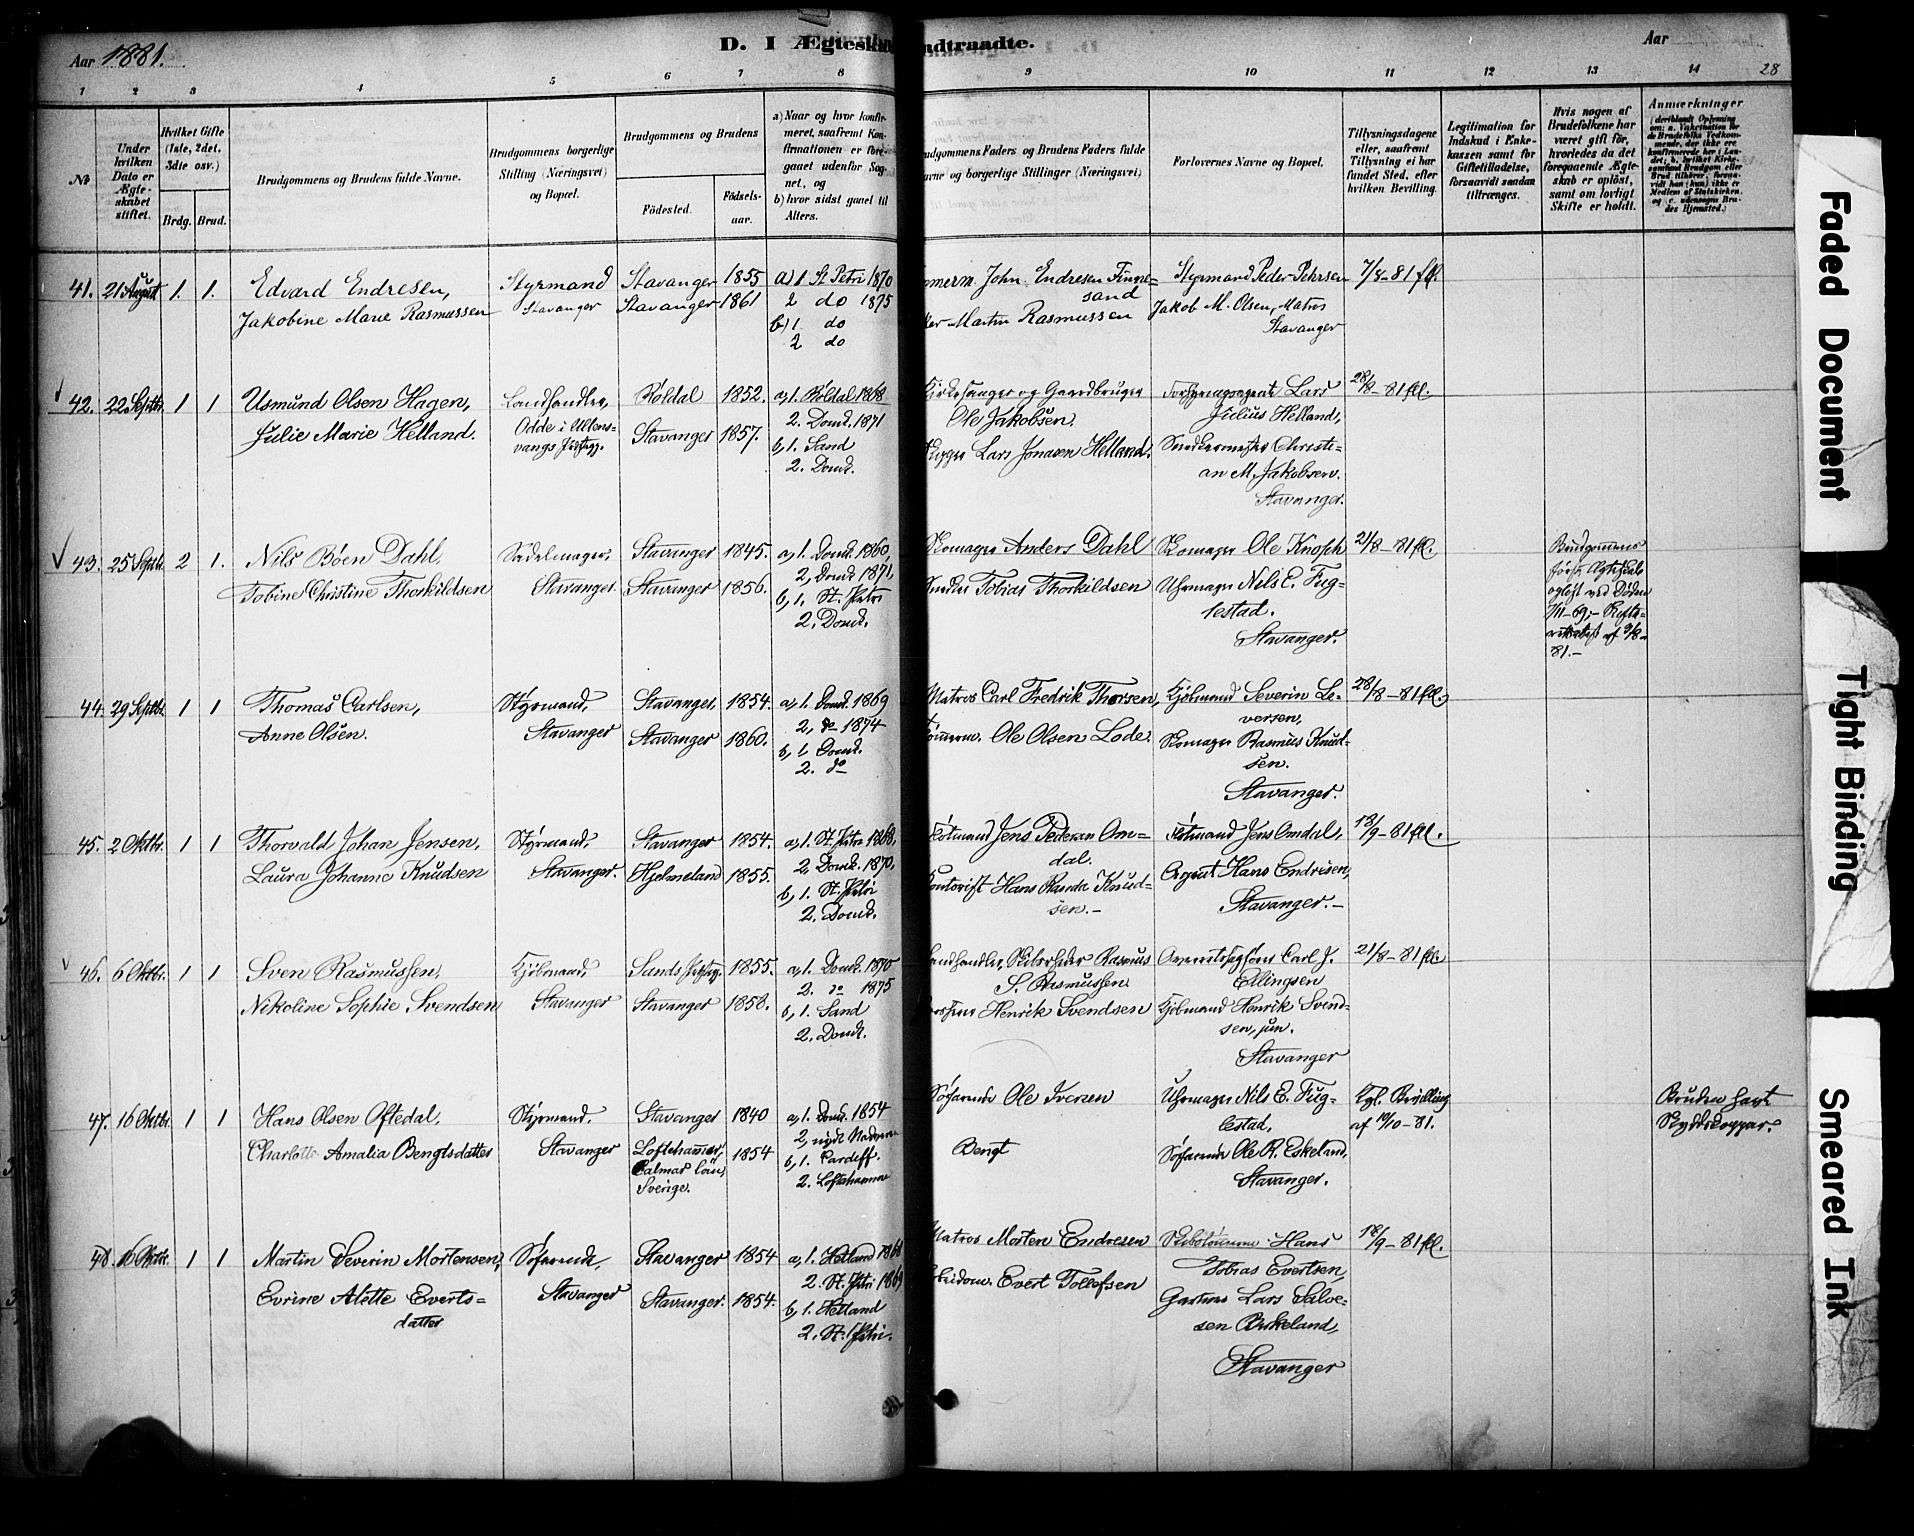 Aar 1881.
D. I Ægteska
ndtraadte.
Aar
28
1 2 3 4 5 6 7 8 9 10 11 12 13 14
No
Under hvilken Dato er Ægteskabet stiftet.
Hvilket Gifte (1ste, 2det, 3die osv.)
Brdg. Brud.
Brudgommens og Brudens fulde Navne.
Brudgommens borgerlige Stilling (Næringsvei) og Bopæl.
Brudgommens og Brudens
Fødested. Fødselsaar.
a) Naar og hvor konfirmeret, saafremt Konfirmationen er foregaaet udenfor Sognet, og
b) hvor sidst gaaet til Alters.
udgommens Faders og Brudens Faders fulde
avne og borgerlige Stillinger (Næringsvei)
Forlovernes Navne og Bopæl.
Tillysningsdagene eller, saafremt Tillysning ei har fundet Sted, efter hvilken Bevilling.
Legitimation for Indskud i Enkekassen samt for Giftetilladelse, forsaavidt saadan tiltrænges.
Hvis nogen af Brudefolkene har været gift før, hvorledes da det foregaaende Ægteskab er opløst, samt om lovligt Skifte er holdt.
Anmærkninger
(deriblandt Oplysning om: a. Vakcination for de Brudefolks Vedkommende, der ikke ere konfirmerede her i Landet; b. hvilket Kirkesamfund Brudgom eller Brud tilhører, forsaavidt han (hun) ikke er Medlem af Statskirken, og c. udensogns Brudes Hjemsted.)
41. 21 August 1. 1. Edvard Endresen, Styrmand Stavanger 1855 a) 1 St Petri 1870
Jakobine Marie Rasmussen Stavanger Stavanger 1861 2 do 1875
b) 1 do
2 do
merm. John Endresen Finnesand
ker Martin Rasmussen
Styrmand Peder Pehrsen
Jakob M. Olsen, Matros
Stavanger
7/8-81 fl.
42. 22 Septbr. 1 1 Usmund Olsen Hagen, Landhandler, Røldal 1852. a, 1. Røldal 1868
Julie Marie Helland. Odde i Ullensvangs Prstgj. Stavanger 1857. 2. Domk. 1871
b, 1. Sand
2. Domk.
Kirkesanger og Gaardbruger
Ole Jakobsen.
Skipper Lars Jonasen Helland.
Lars
Julius Helland,
Snedkermester Christian M. Jakobsen.
Stavanger.
28/8-81 fl.
43. 25 Septbr. 2 1. Nils Bøen Dahl, Sadelmager, Stavanger 1845. a, 1. Domk. 1860,
Tobine Christine Thorkildsen Stavanger. Stavanger 1856. 2, Domk 1871,
b, 1. St. Petri
2. Domk.
Skomager Anders Dahl
Snedker Tobias Thorkildsen
Skomager Ole Knoph
Uhrmager Nils E. Fuglestad.
Stavanger.
21/8-81 fl.
Brudgommens første Ægteskab opløst ved Døden
44. 29 Septbr. 1 1 Thomas Carlsen, Styrmand, Stavanger, 1854. a, 1. Domk. 1869
Anne Olsen. Stavanger Stavanger 1860. 2, do 1874
b, 1. Domk.
2. do
Matros Carl Fredrik Thorsen,
Tømmerm. Ole Olsen Lode.
Kjøbmand Severin Leversen,
Skomager Rasmus Knudsen.
Stavanger.
28/8-81 fl.
45. 2 Oktbr. 1 1 Thorvald Johan Jensen, Styrmand, Stavanger 1854. a, 1. St. Petri 1868,
Laura Johanne Knudsen Stavanger. Hjelmeland 1855. 2, Domk. 1870,
b, 1. St. Petri
2. Domk.
Flotmand Jens Pedersen Omdal.
Kontorist Hans Knudsen.-
Flotmand Jens Omdal,
Agent Hans Endresen,
Stavanger.-
18/9-81 fl.
46. 6 Oktbr. 1 1 Sven Rasmussen, Kjøbmand, Sands Prstgj. 1855. a, 1. Domk. 1870
Nikoline Sophie Svendsen Stavanger Stavanger 1858. 2. do 1875
b, 1. Sand
2. Domk.
Landhandler, Skibsreder Rasmus
S. Rasmussen.
Henrik Svendsen
Carl J.
Ellingsen
Kjøbmand Henrik Svendsen, jun.
Stavanger
21/8-81 fl.
47. 16 Oktbr. 1 1 Hans Olsen Oftedal, Styrmand. Stavanger 1840 a, 1. Domk. 1854
Charlotte Amalia Bengtsdatter Stavanger Loftehammer, Calmar län, Sverige. 1854
b, 1. Cardiff.
2. Loftehammer
Søfarende Ole Iversen
Bengt
Uhrmager Nils E. Fuglestad,
Søfarende Ole R. Eskeland,
Stavanger.
Kgl. Bevilling
af 10/10-81.
Bruden havt
Skyddskoppar.
48. 16 Oktbr. 1 1 Martin Severin Mortensen, Søfarende, Stavanger 1854 a, 1. Hetland 1868
Evrine Alette Evertsdatter Stavanger Stavanger. 1854. 2. St. Petri 1869
b, 1. Hetland
2. St. Petri.
Matros Morten Endresen
Arbeidsm. Evert Tollefsen
Hans
Tobias Evertsen,
Gartner Lars Salvesen Birkeland,
Stavanger
18/9-81 fl.
Faded Document
Tight Binding
Smeared Ink